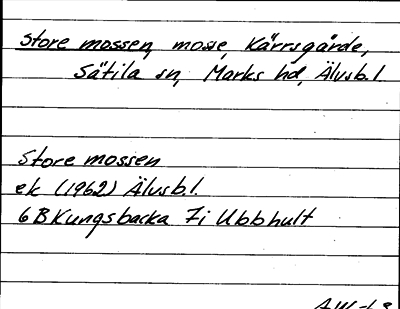 Store mossen, mosse, Kärrsgärde,
Sätila sn, Marks hd, Älvsb.l.
Store mossen
ek (1962) Älvsb.l.
6B Kungsbacka 7i Ubbhult